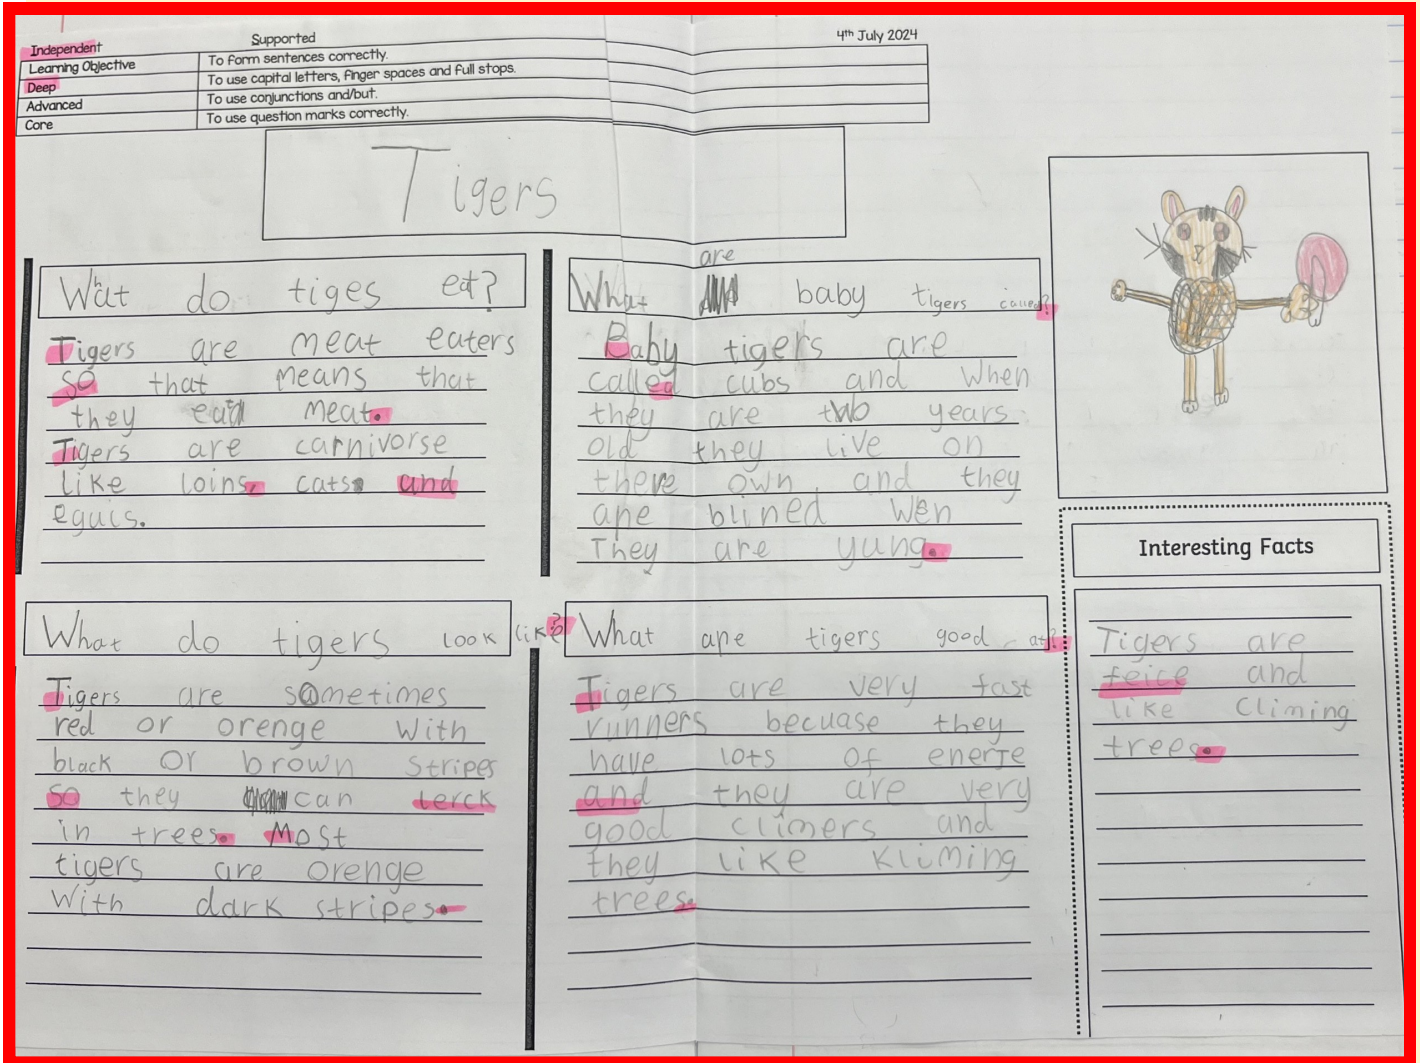 Independent Supported 4th July 2024
Learning Objective To form sentences correctly.
Deep To use capital letters, finger spaces and full stops.
Advanced To use conjunctions and/but.
Core To use question marks correctly.
Tigers
What do tiges eat?
Tigers are meat eaters
so that means that
they eat meat.
Tigers are carnivorse
like loins, cats and
eguls.
What are baby tigers called?
Baby tigers are
called cubs and when
they are two years
old they live on
there own and they
ape blined wen
They are yung.
What do tigers look like?
Tigers are sometimes
red or orenge with
black or brown stripes
so they can lerck
in trees. Most
tigers are orenge
with dark stripes.
What ape tigers good at?
Tigers are very fast
runners becuase they
have lots of enerje
and they are very
good climers and
they like kliming
trees.
Interesting Facts
Tigers are
feice and
like Climing
trees.